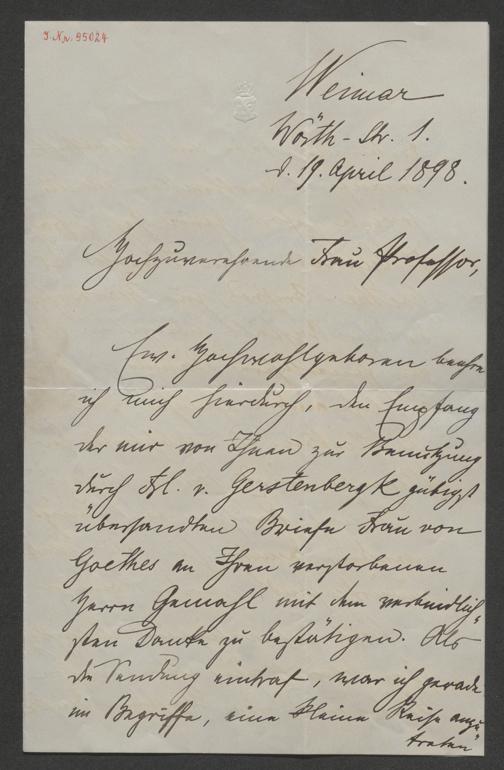 J. N. 95024
Weimar
Wörth-Str. 1.
d. 19. April 1898.
Hochzuverehrende Frau Professor,
Ew. Hochwohlgeboren beehre
ich mich hierdurch den Empfang
der mir von Ihnen zur Benutzung
durch Frl. v. Gerstenbergk gütigst
übersandten Briefe Frau von
Goethes an Ihren verstorbenen
Herrn Gemahl mit dem verbindlich-
sten Danke zu bestätigen. Als
die Sendung eintraf, war ich gerade
im Begriffe, eine kleine Reise anzu-
treten